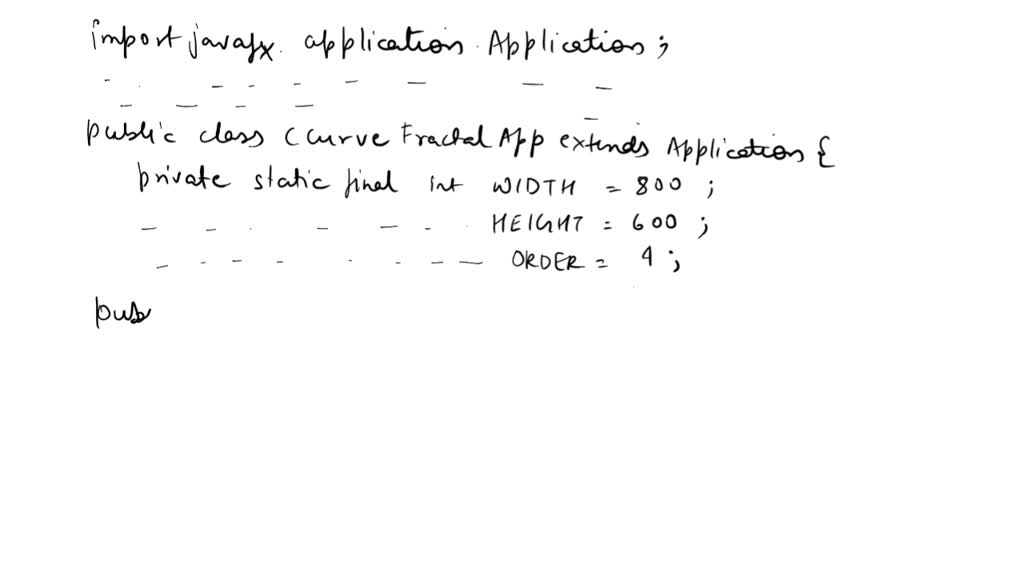 import javafx. application. Application ;
- - - - - - - -
- - - - -
public class CCurve Fractal App extends Application {
private static final int WIDTH = 800 ;
- - - - - HEIGHT = 600 ;
- - - - - - - - ORDER = 4 ;
pub